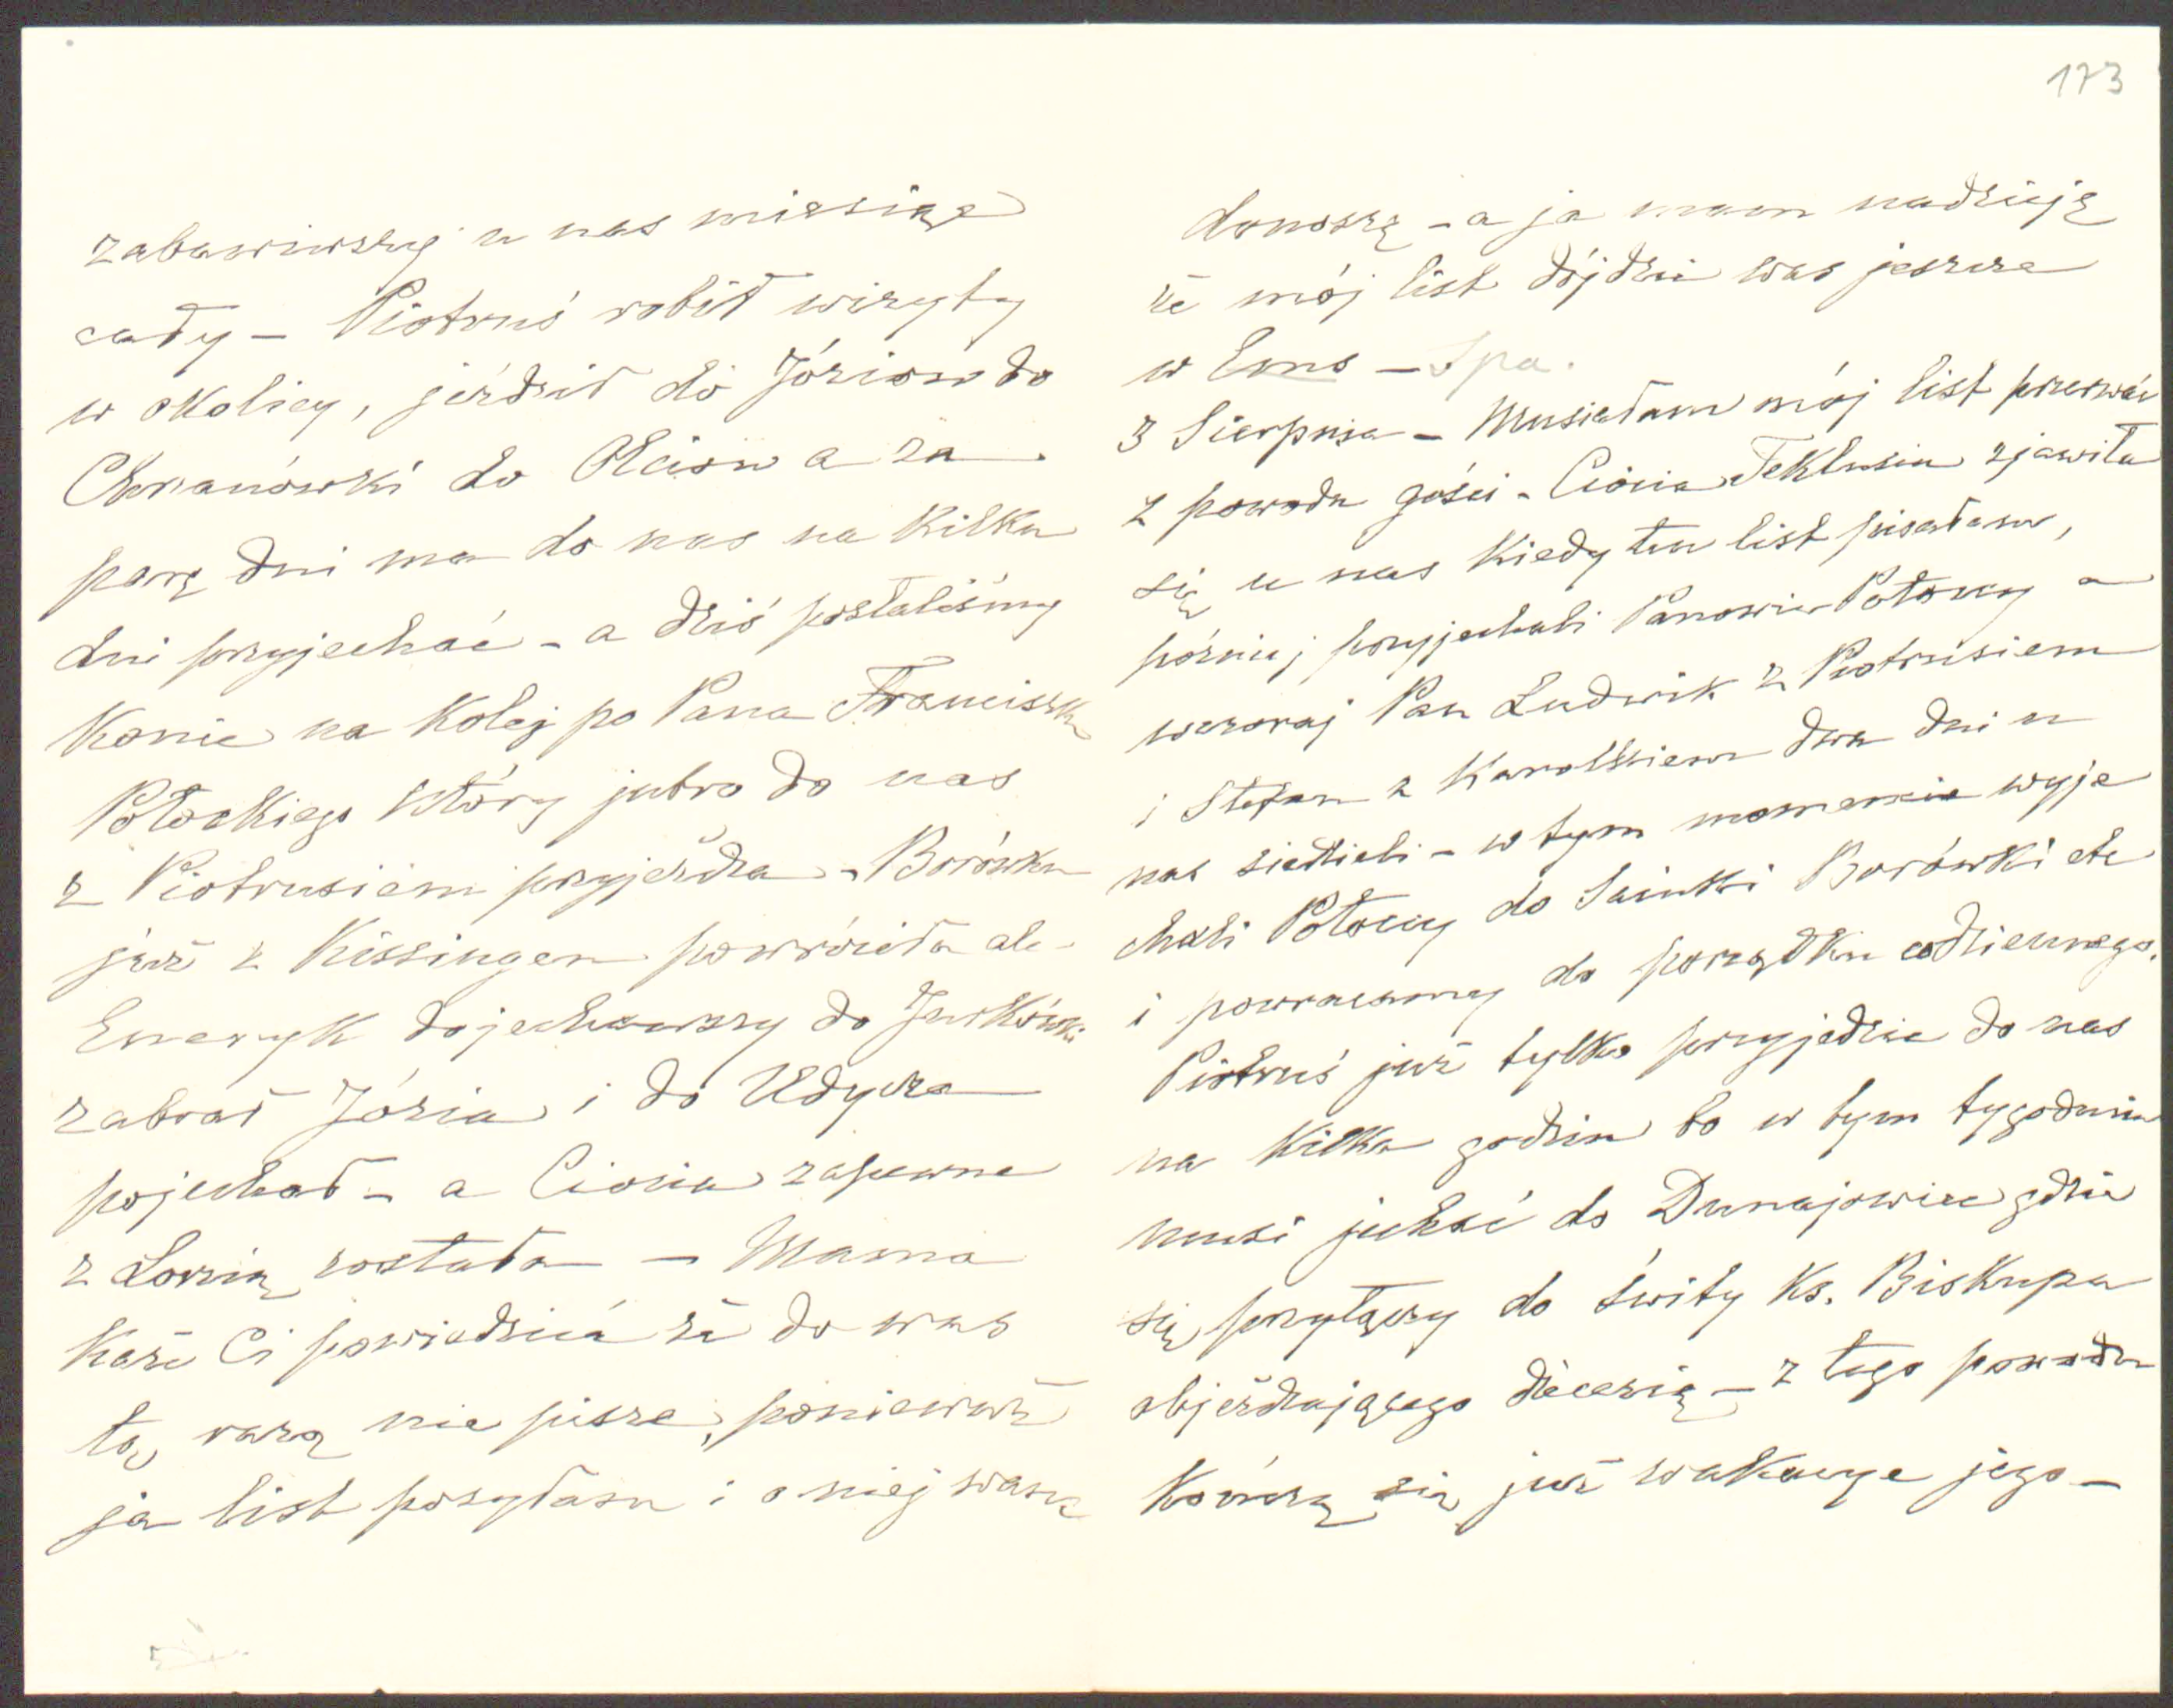 173
zabawiwszy u nas miesiąc
cały – Piotruś robił wizyty
w okolicy, jeździł do Józiow do
Chrzanówki do Olciow a za
parę dni ma do nas na kilka
dni przyjechać – a dziś posłaliśmy
konie na kolej po Pana Franciszka
Potockiego który jutro do nas
z Piotrusiem przyjeżdża – Borówka
już z Kissingen powróciła ale
Emeryk dojechawszy do Jurkówki
zabrał Józia i do Udycza
pojechał – a Ciocia zapewne
z Lorcią została – Mama
każe Ci powiedzieć że do was
tą razą nie pisze, ponieważ
ja list posyłam i o niej wam
donoszę – a ja mam nadzieję
że mój list dójdzie was jeszcze
w Ems – Spa.
3 Sierpnia – Musiałam mój list przerwać
z powodu gości – Ciocia Teklusia zjawiła
się u nas kiedy ten list pisałam,
późniéj przyjechali Panowie Potoccy a
wczoraj Pan Ludwik z Piotrusiem
i Stefan z Karolkiem dwa dni u
nas siedzieli – w tym momencie wyje
chali Potoccy do Sainki Borówki etc
i powracamy do porządku codziennego.
Piotruś już tylko przyjedzie do nas
na kilka godzin bo w tym tygodniu
musi jechać do Dunajowiec gdzie
się przyłączy do świty Ks. Biskupa
objeżdżającego diecezię – z tego powodu
kończą się już wakacye jego –